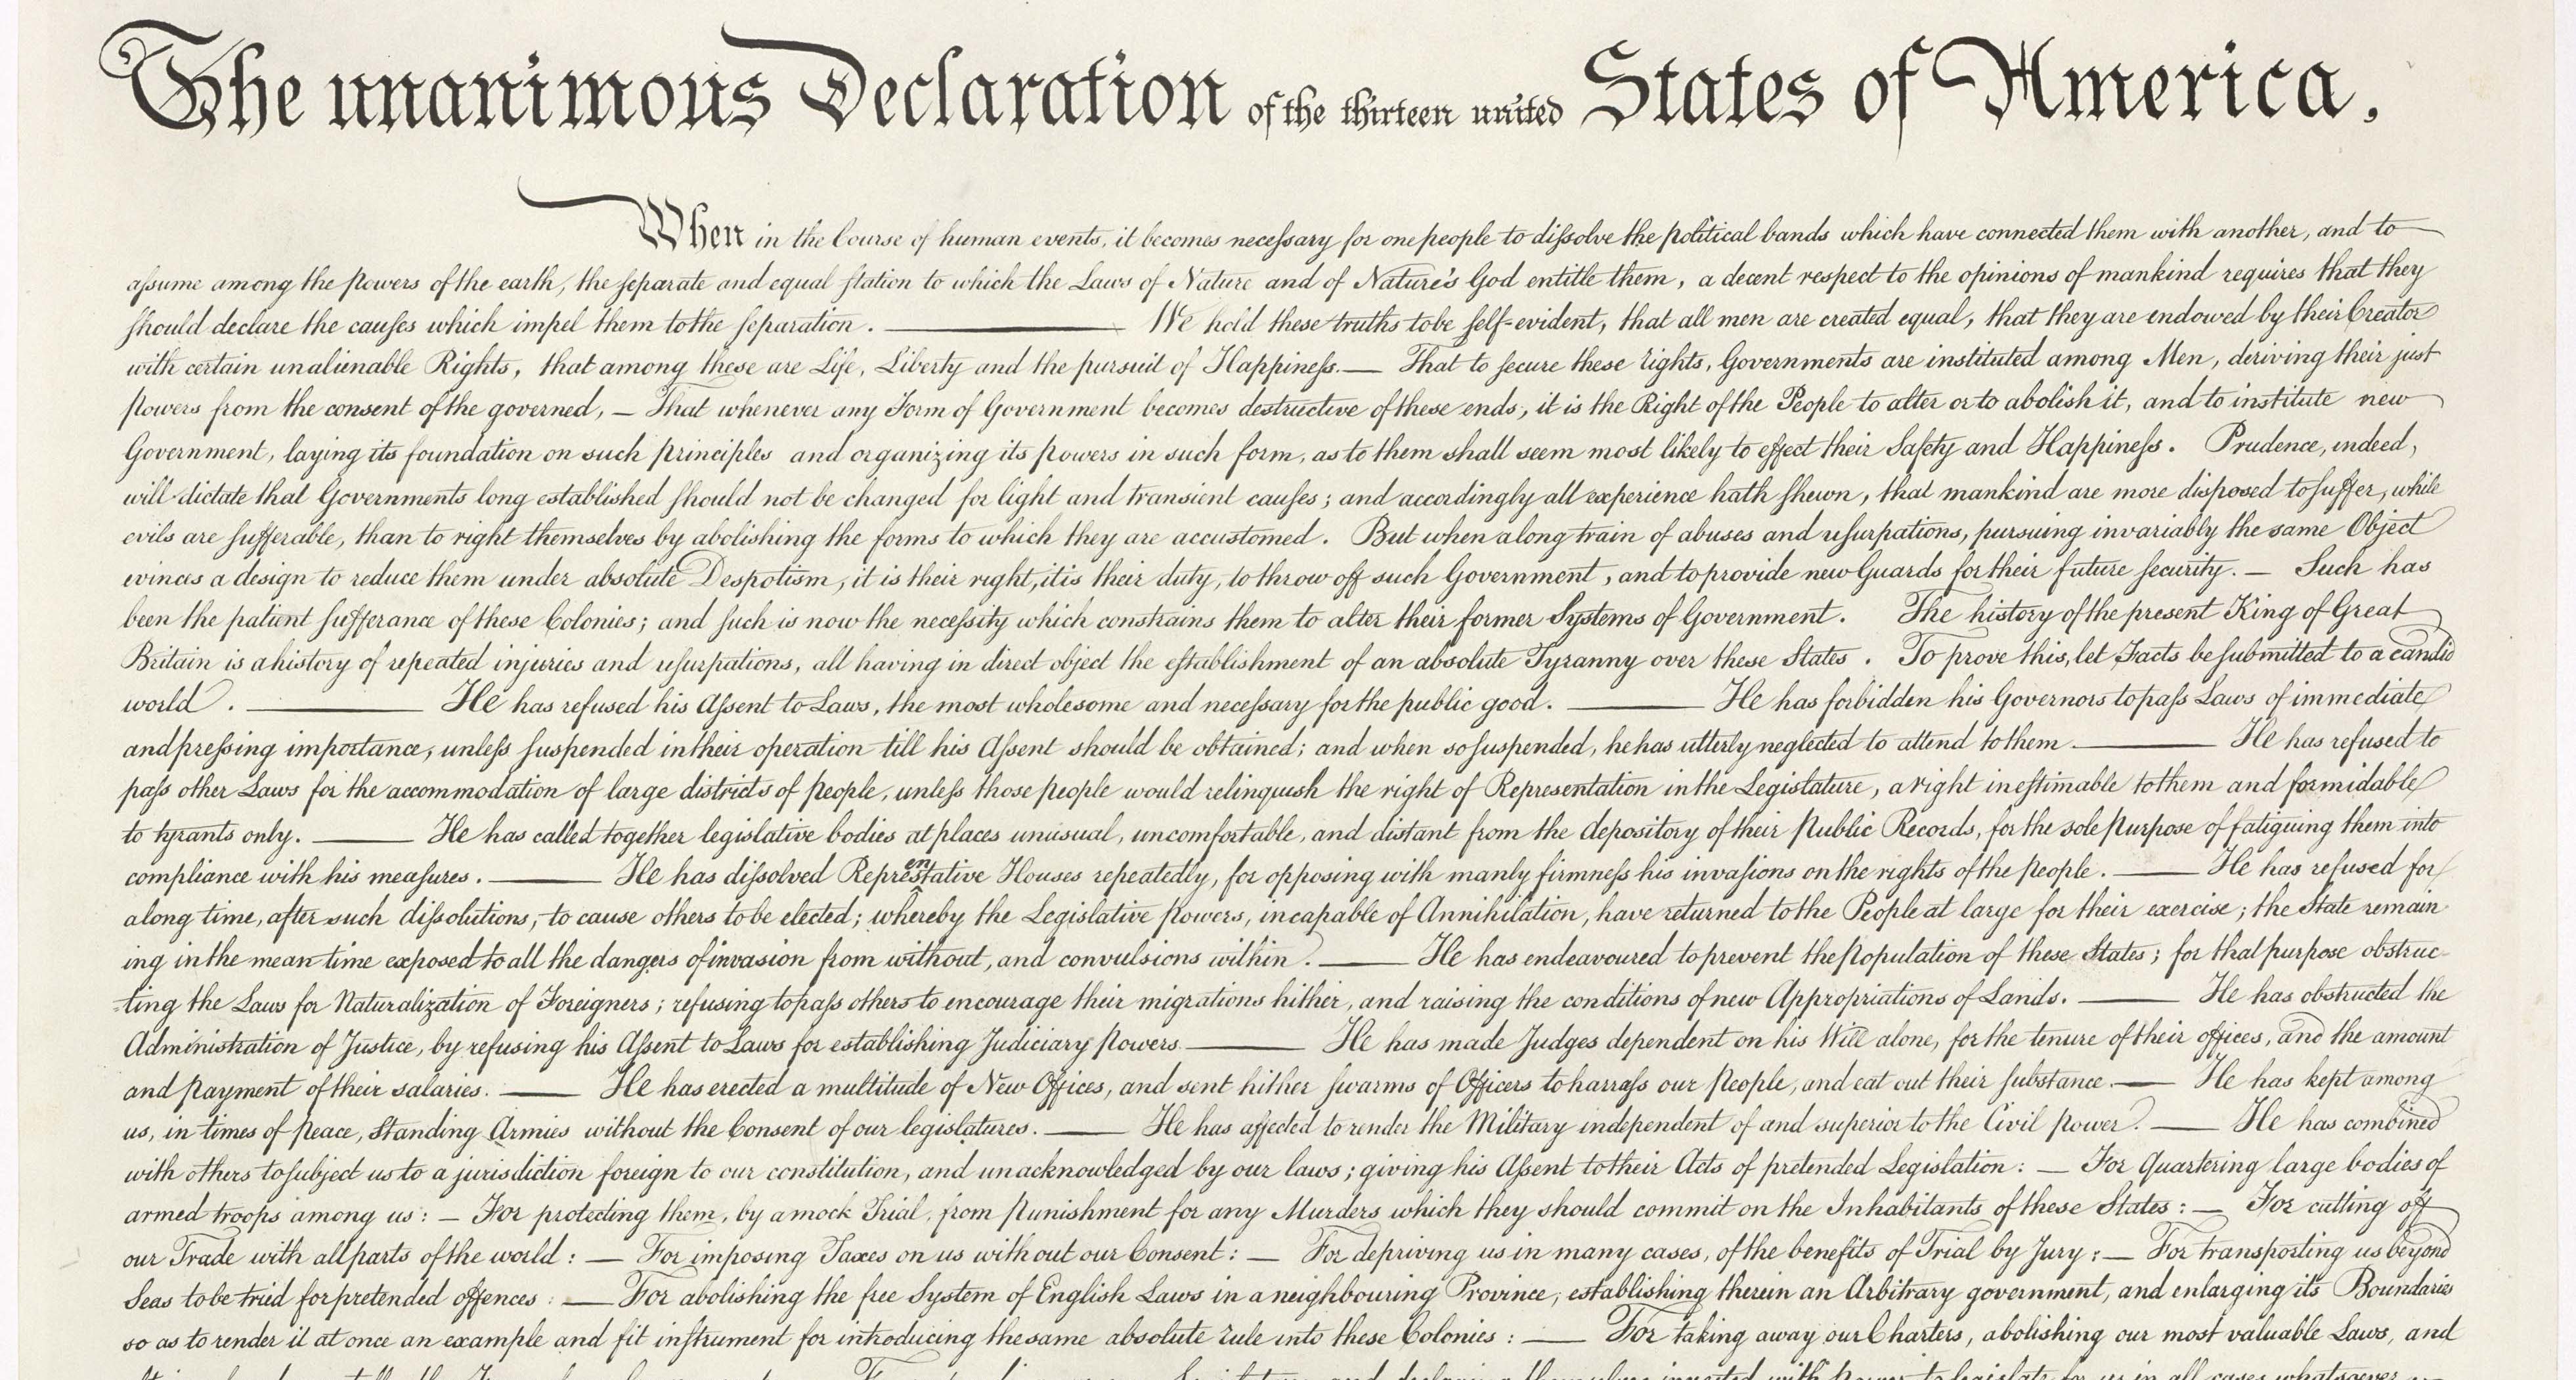 The unanimous Declaration of the thirteen united States of America,
When in the Course of human events, it becomes necessary for one people to dissolve the political bands which have connected them with another, and to
assume among the powers of the earth, the separate and equal station to which the Laws of Nature and of Nature's God entitle them, a decent respect to the opinions of mankind requires that they
should declare the causes which impel them to the separation. ——— We hold these truths to be self-evident, that all men are created equal, that they are endowed by their Creator
with certain unalienable Rights, that among these are Life, Liberty and the pursuit of Happiness.— That to secure these rights, Governments are instituted among Men, deriving their just
powers from the consent of the governed, — That whenever any Form of Government becomes destructive of these ends, it is the Right of the People to alter or to abolish it, and to institute new
Government, laying its foundation on such principles and organizing its powers in such form, as to them shall seem most likely to effect their Safety and Happiness. Prudence, indeed,
will dictate that Governments long established should not be changed for light and transient causes; and accordingly all experience hath shewn, that mankind are more disposed to suffer, while
evils are sufferable, than to right themselves by abolishing the forms to which they are accustomed. But when a long train of abuses and usurpations, pursuing invariably the same Object
evinces a design to reduce them under absolute Despotism, it is their right, it is their duty, to throw off such Government, and to provide new Guards for their future security. — Such has
been the patient sufferance of these Colonies; and such is now the necessity which constrains them to alter their former Systems of Government. The history of the present King of Great
Britain is a history of repeated injuries and usurpations, all having in direct object the establishment of an absolute Tyranny over these States. To prove this, let Facts be submitted to a candid
world. ——— He has refused his Assent to Laws, the most wholesome and necessary for the public good. ——— He has forbidden his Governors to pass Laws of immediate
and pressing importance, unless suspended in their operation till his Assent should be obtained; and when so suspended, he has utterly neglected to attend to them ——— He has refused to
pass other Laws for the accommodation of large districts of people, unless those people would relinquish the right of Representation in the Legislature, a right inestimable to them and formidable
to tyrants only. ——— He has called together legislative bodies at places unusual, uncomfortable, and distant from the depository of their public Records, for the sole purpose of fatiguing them into
compliance with his measures. ——— He has dissolved Representative Houses repeatedly, for opposing with manly firmness his invasions on the rights of the people. ——— He has refused for
a long time, after such dissolutions, to cause others to be elected; whereby the Legislative powers, incapable of Annihilation, have returned to the People at large for their exercise; the State remain-
ing in the mean time exposed to all the dangers of invasion from without, and convulsions within. ——— He has endeavoured to prevent the population of these States; for that purpose obstruc-
ting the Laws for Naturalization of Foreigners; refusing to pass others to encourage their migrations hither, and raising the conditions of new Appropriations of Lands. ——— He has obstructed the
Administration of Justice, by refusing his Assent to Laws for establishing Judiciary powers ——— He has made Judges dependent on his Will alone, for the tenure of their offices, and the amount
and payment of their salaries. ——— He has erected a multitude of New Offices, and sent hither swarms of Officers to harrass our people, and eat out their substance. —— He has kept among
us, in times of peace, Standing Armies without the Consent of our legislatures. ——— He has affected to render the Military independent of and superior to the Civil power. —— He has combined
with others to subject us to a jurisdiction foreign to our constitution, and unacknowledged by our laws; giving his Assent to their Acts of pretended Legislation: — For Quartering large bodies of
armed troops among us: — For protecting them, by a mock Trial, from punishment for any Murders which they should commit on the Inhabitants of these States: — For cutting off
our Trade with all parts of the world: — For imposing Taxes on us without our Consent: — For depriving us in many cases, of the benefits of Trial by Jury: — For transporting us beyond
Seas to be tried for pretended offences: — For abolishing the free System of English Laws in a neighbouring Province, establishing therein an Arbitrary government, and enlarging its Boundaries
so as to render it at once an example and fit instrument for introducing the same absolute rule into these Colonies: —— For taking away our Charters, abolishing our most valuable Laws, and
and declaring themselves invested with power to legislate for us in all cases whatsoever